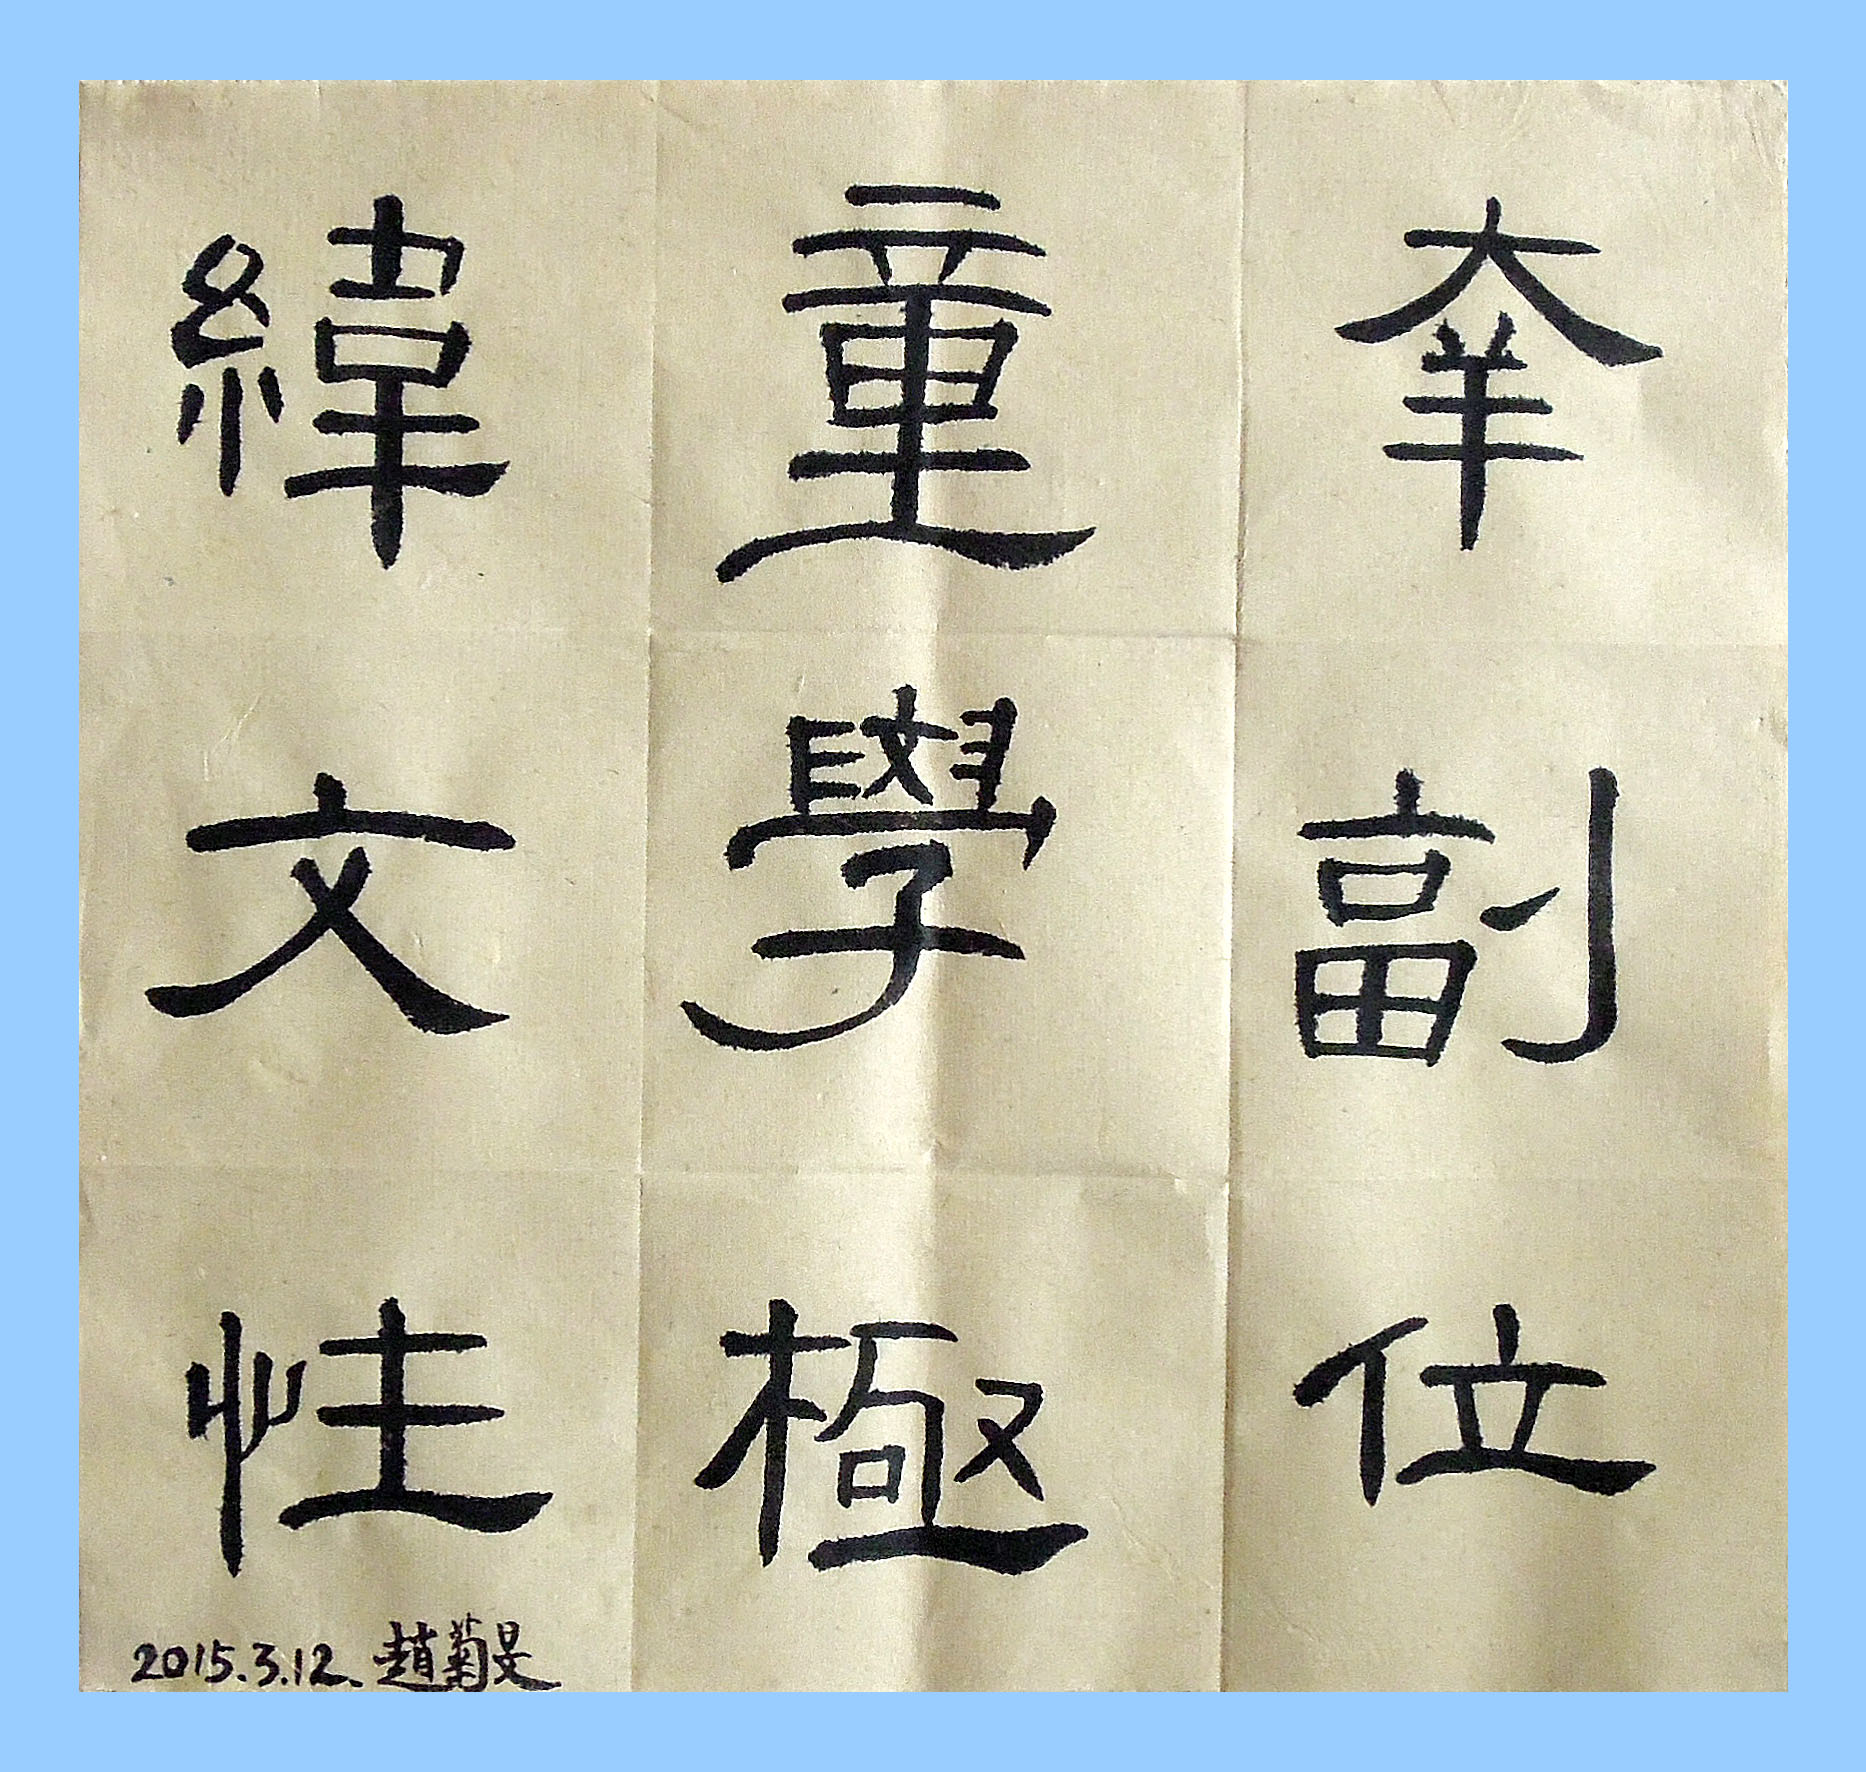 幸副位
童學極
緯文性
2015.3.12. 趙菊旻